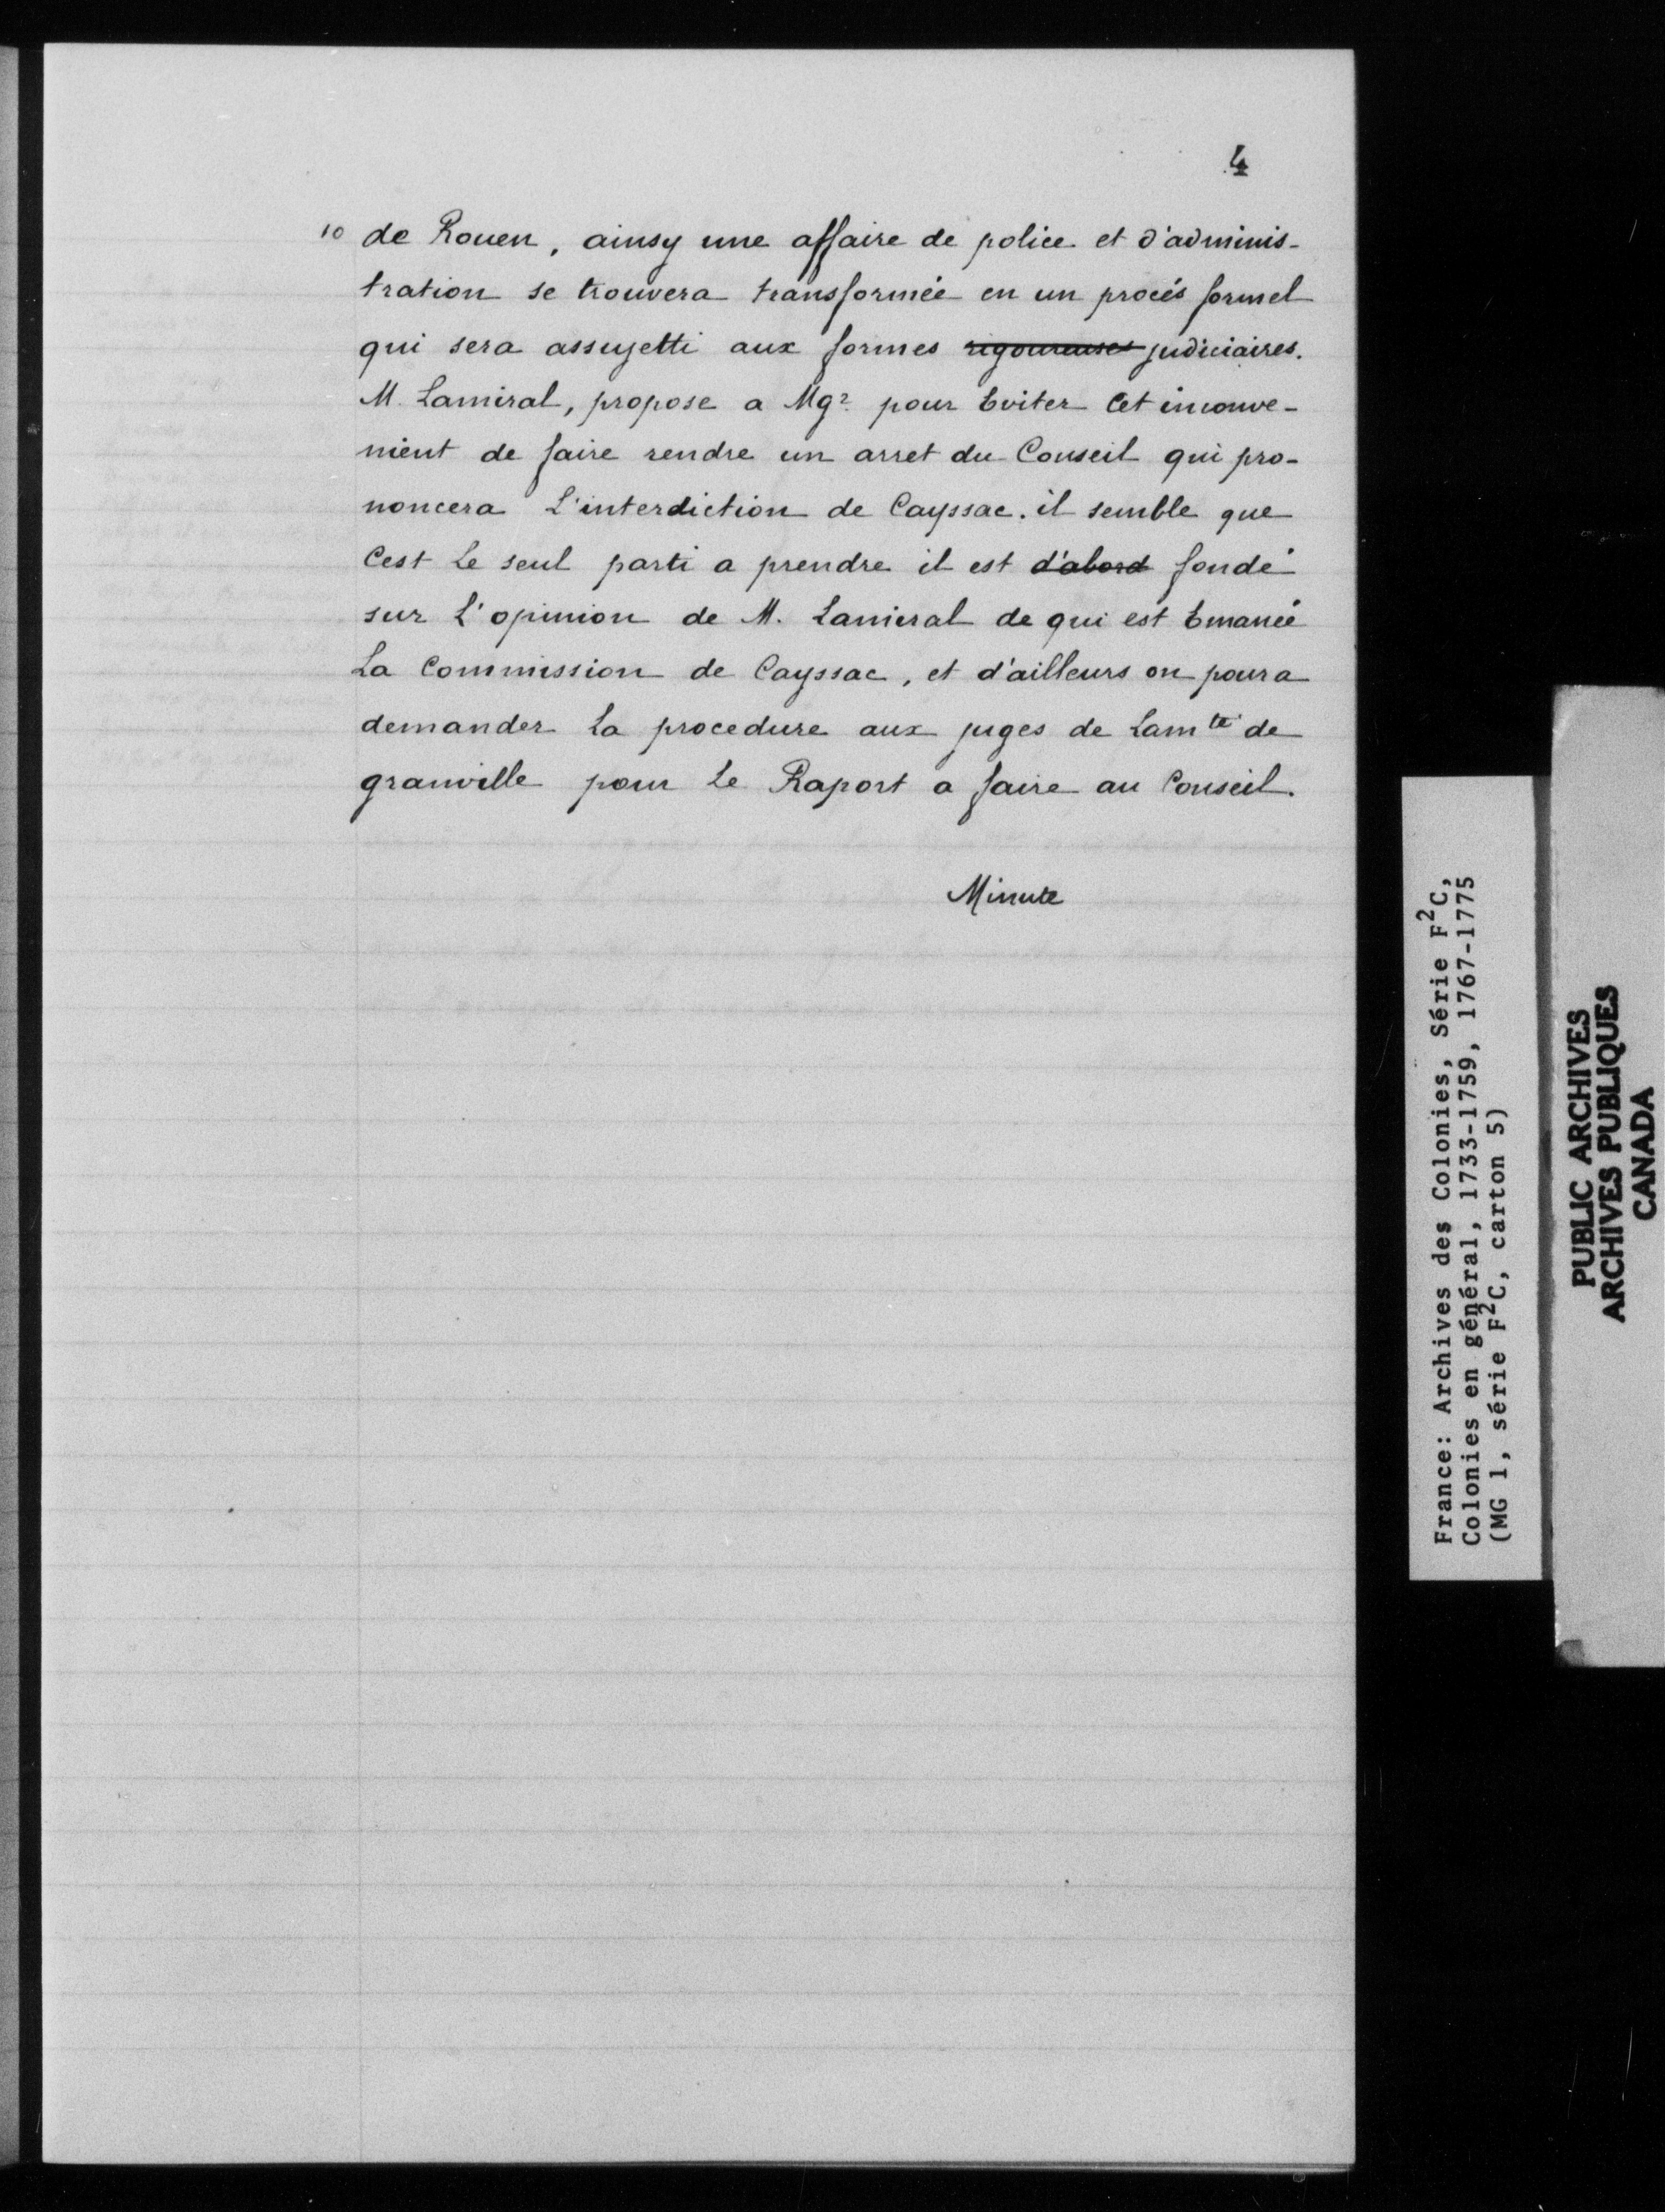 4
10 de Rouen, ainsy une affaire de police et d'adminis-
tration se trouvera transformée en un procés formel
qui sera assujetti aux formes rigoureuses judiciaires.
M. Lamiral, propose a Mgr. pour Eviter Cet inconve-
nient de faire rendre un arret du Conseil qui pro-
noncera L'interdiction de Cayssac. il semble que
Cest Le seul parti a prendre il est d'abord fondé
sur L'opinion de M. Lamiral de qui est Emanée
La Commission de Cayssac, et d'ailleurs on poura
demander La procedure aux juges de Lamté de
granville pour Le Raport a faire au Conseil.
Minute
France: Archives des Colonies, Série F2C,
Colonies en général, 1733-1759, 1767-1775
(MG 1, série F2C, carton 5)
PUBLIC ARCHIVES
ARCHIVES PUBLIQUES
CANADA